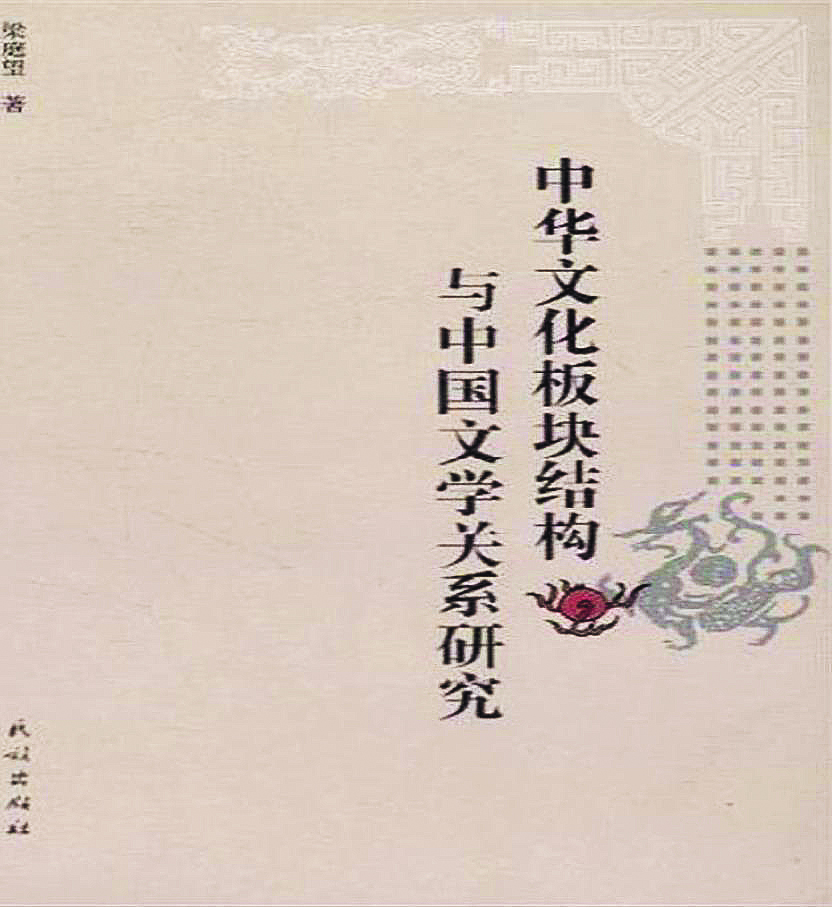 中华文化板块结构
与中国文学关系研究
梁庭望 著
民族出版社